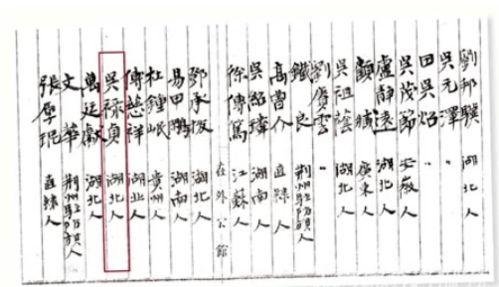 劉邦驥 湖北人
吳元澤 〃
田吳炤 〃
吳茂節 安徽人
盧靜遠 湖北人
顧臧 廣東人
吳祖蔭 湖北人
劉賡雲 〃
鐵良 荊州駐防旗人
高曹介 直隸人
吳紹璘 湖南人
徐傳篤 江蘇人
在外公館
鄧承拔 湖北人
易田 湖南人
杜鐘岷 貴州人
傅慈祥 湖北人
吳祿貞 湖北人
萬廷獻 湖北人
文華 荊州駐防旗人
張厚琨 直隸人